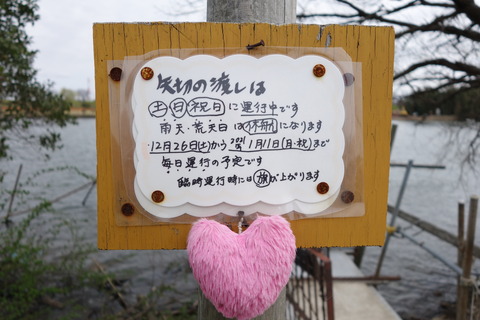 矢切の渡しは
土日祝日に運行中です
雨天・荒天日は休航になります
12月26日(土)から2021 1月11日(月・祝)まで
毎日運行の予定です
臨時運行時には旗が上がります